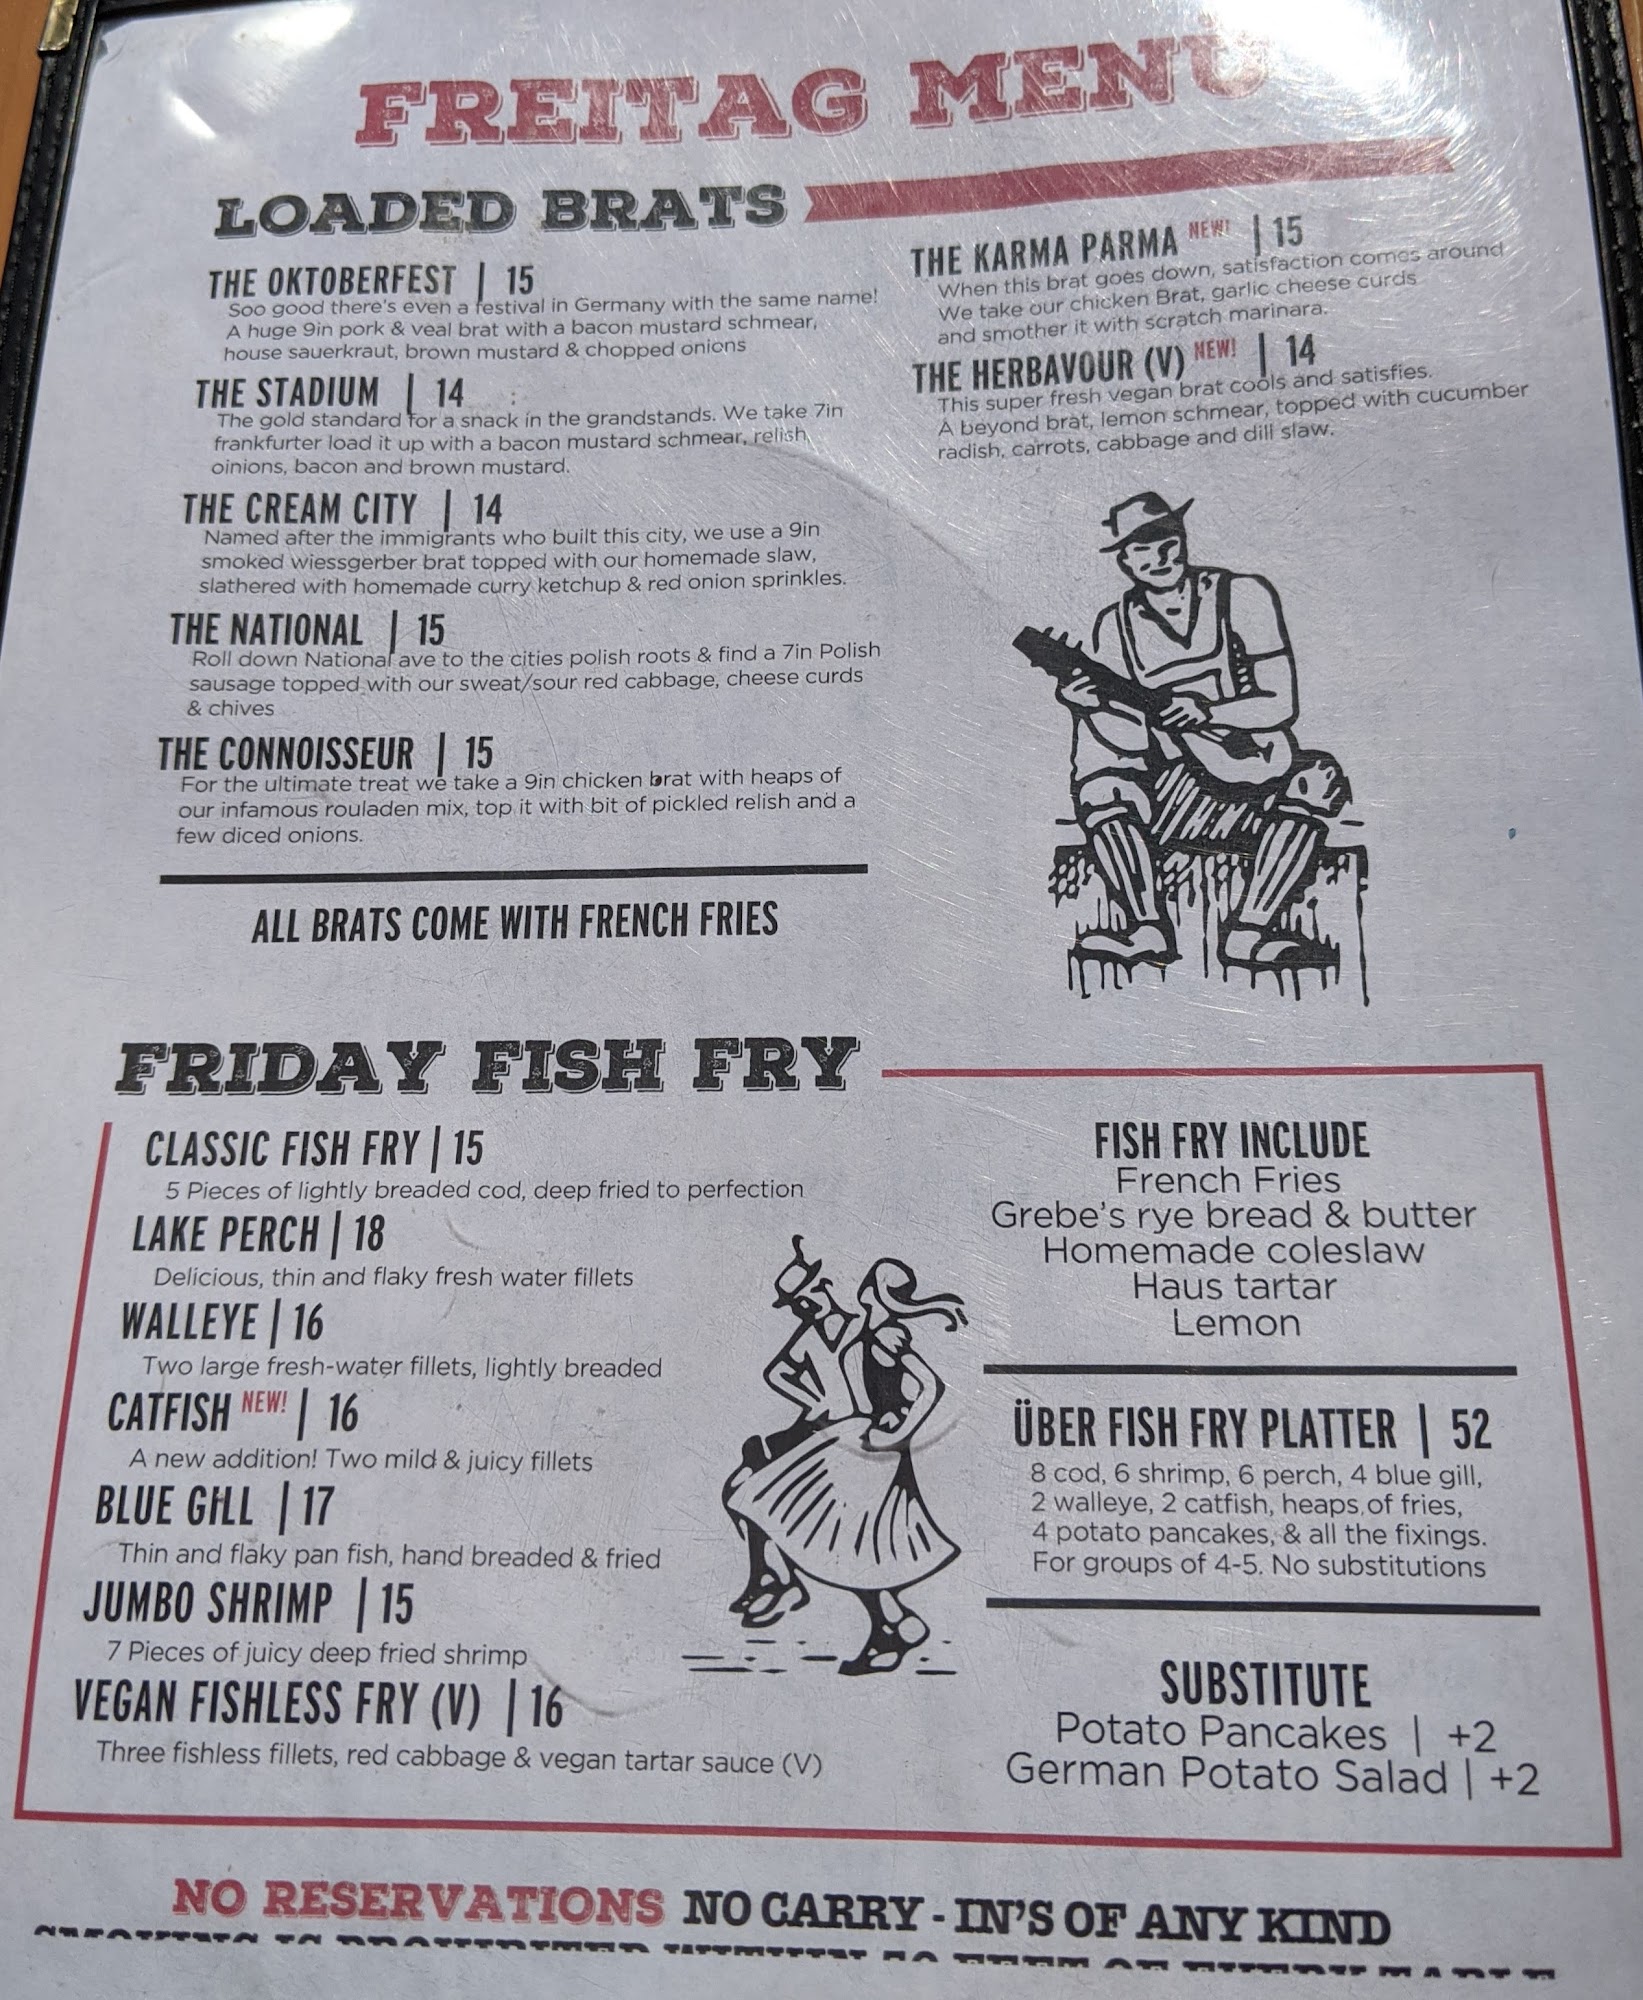 FREITAG MENÜ
LOADED BRATS
THE OKTOBERFEST | 15
Soo good there's even a festival in Germany with the same name!
A huge 9in pork & veal brat with a bacon mustard schmear,
house sauerkraut, brown mustard & chopped onions
THE STADIUM | 14
The gold standard for a snack in the grandstands. We take 7in
frankfurter load it up with a bacon mustard schmear, relish,
oinions, bacon and brown mustard.
THE CREAM CITY | 14
Named after the immigrants who built this city, we use a 9in
smoked wiessgerber brat topped with our homemade slaw,
slathered with homemade curry ketchup & red onion sprinkles.
THE NATIONAL | 15
Roll down National ave to the cities polish roots & find a 7in Polish
sausage topped with our sweat/sour red cabbage, cheese curds
& chives
THE CONNOISSEUR | 15
For the ultimate treat we take a 9in chicken brat with heaps of
our infamous rouladen mix, top it with bit of pickled relish and a
few diced onions.
ALL BRATS COME WITH FRENCH FRIES
THE KARMA PARMA NEW! | 15
When this brat goes down, satisfaction comes around
We take our chicken Brat, garlic cheese curds
and smother it with scratch marinara.
THE HERBAVOUR (V) NEW! | 14
This super fresh vegan brat cools and satisfies.
A beyond brat, lemon schmear, topped with cucumber
radish, carrots, cabbage and dill slaw.
FRIDAY FISH FRY
CLASSIC FISH FRY | 15
5 Pieces of lightly breaded cod, deep fried to perfection
LAKE PERCH | 18
Delicious, thin and flaky fresh water fillets
WALLEYE | 16
Two large fresh-water fillets, lightly breaded
CATFISH NEW! | 16
A new addition! Two mild & juicy fillets
BLUE GILL | 17
Thin and flaky pan fish, hand breaded & fried
JUMBO SHRIMP | 15
7 Pieces of juicy deep fried shrimp
VEGAN FISHLESS FRY (V) | 16
Three fishless fillets, red cabbage & vegan tartar sauce (V)
FISH FRY INCLUDE
French Fries
Grebe's rye bread & butter
Homemade coleslaw
Haus tartar
Lemon
ÜBER FISH FRY PLATTER | 52
8 cod, 6 shrimp, 6 perch, 4 blue gill,
2 walleye, 2 catfish, heaps of fries,
4 potato pancakes, & all the fixings.
For groups of 4-5. No substitutions
SUBSTITUTE
Potato Pancakes | +2
German Potato Salad | +2
NO RESERVATIONS NO CARRY - IN'S OF ANY KIND